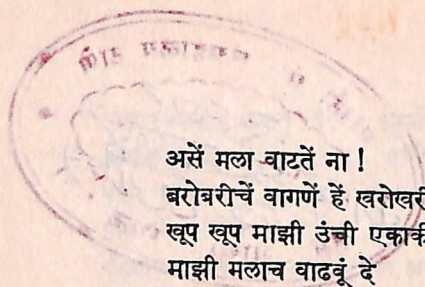 असें मला वाटतें ना !
बरोबरीचें वागणें हें खरोखरी
खूप खूप माझी उंची एकाकी
माझी मलाच वाढवूं दे